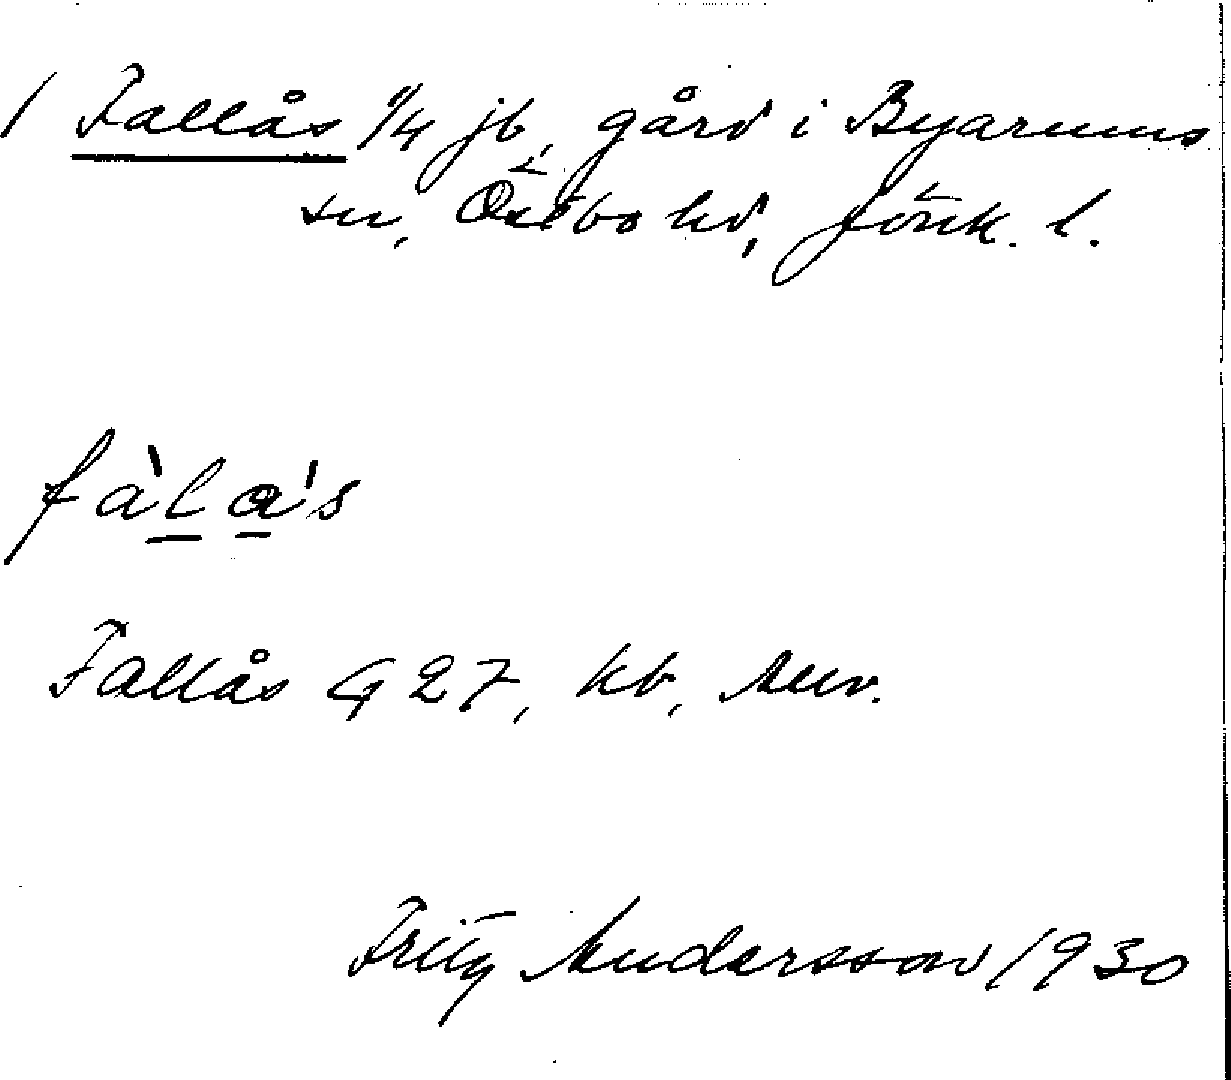 1 Fallås 1/4 jb, gård i Byarums
sn, Östbo hd, Jönk. l.
fàla's
Fallås G 27, kb, Muv.
Fritz Andersson 1930